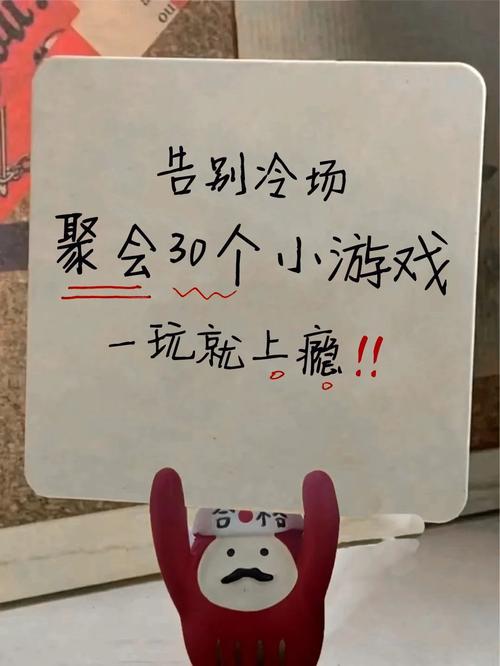 ou
告别冷场
聚会30个小游戏
一玩就上瘾!!
合格